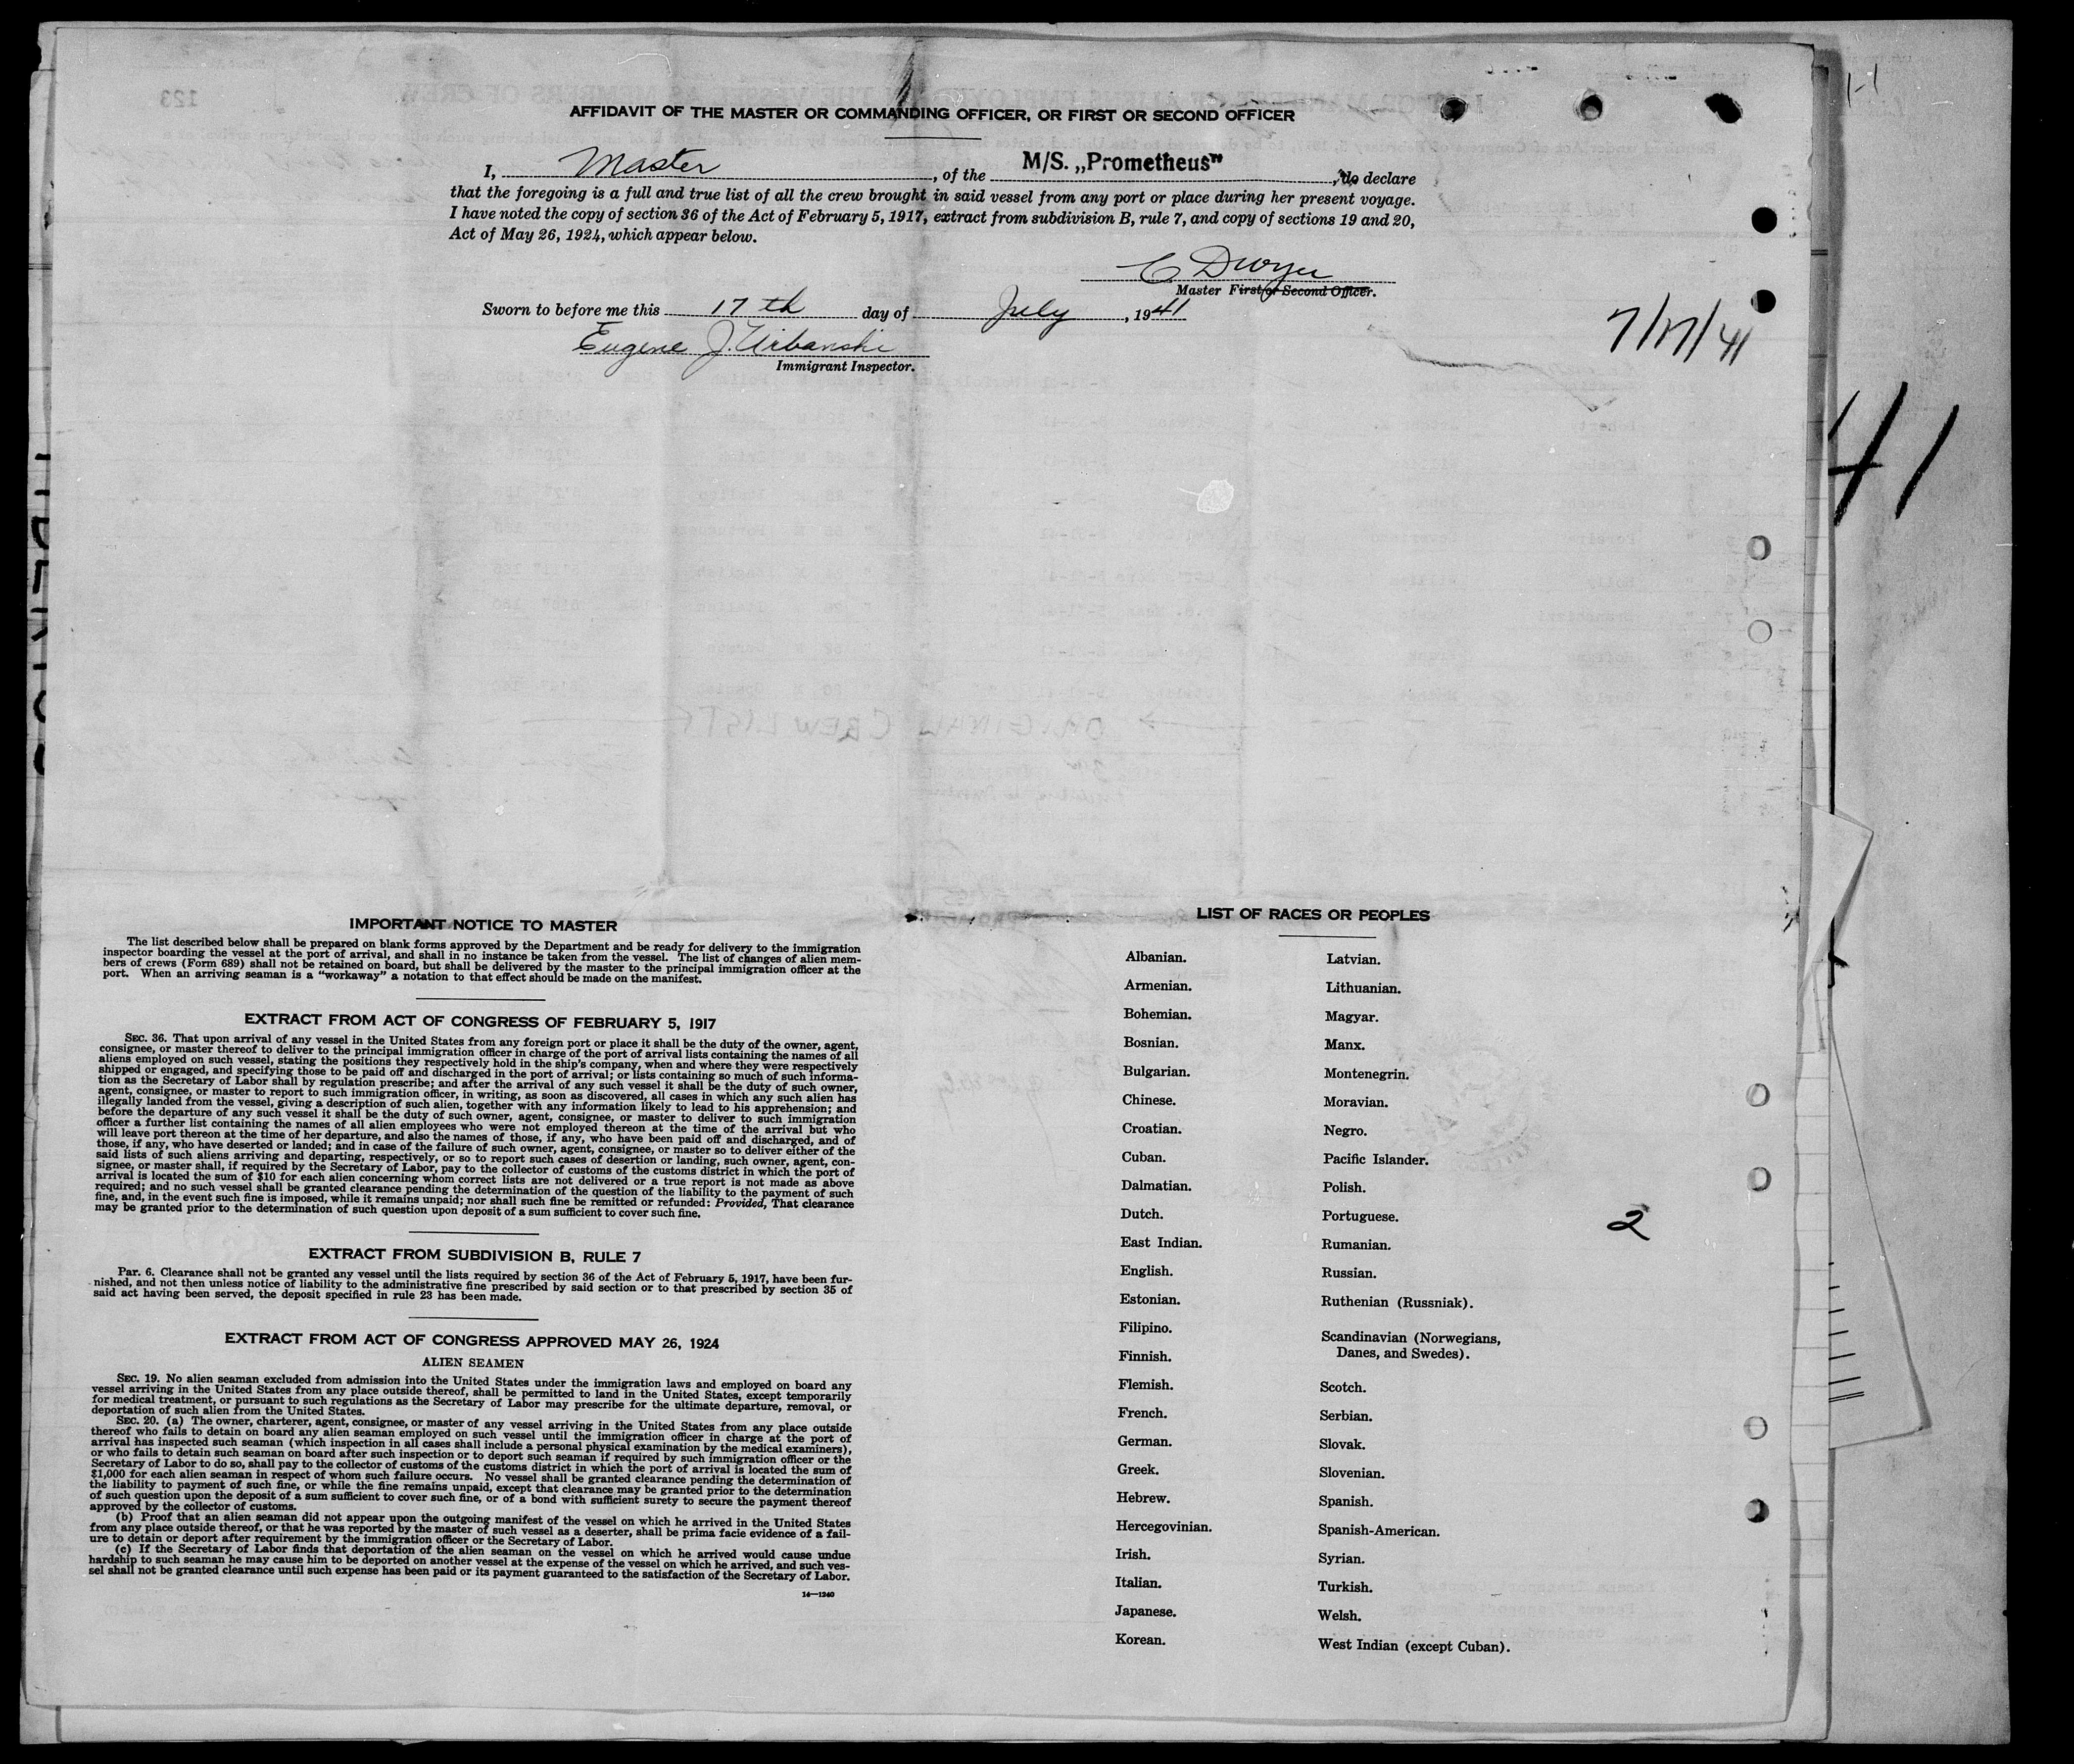 AFFIDAVIT OF THE MASTER OR COMMANDING OFFICER, OR FIRST OR SECOND OFFICER
I, Master, of the M/S. „Prometheus", do declare
that the foregoing is a full and true list of all the crew brought in said vessel from any port or place during her present voyage.
I have noted the copy of section 36 of the Act of February 5, 1917, extract from subdivision B, rule 7, and copy of sections 19 and 20,
Act of May 26, 1924, which appear below.
C Dwyer
Master First or Second Officer.
Sworn to before me this 17th day of July, 1941
Eugene J. Urbanski
Immigrant Inspector.
7/17/41
41
IMPORTANT NOTICE TO MASTER
The list described below shall be prepared on blank forms approved by the Department and be ready for delivery to the immigration
inspector boarding the vessel at the port of arrival, and shall in no instance be taken from the vessel. The list of changes of alien mem-
bers of crews (Form 689) shall not be retained on board, but shall be delivered by the master to the principal immigration officer at the
port. When an arriving seaman is a "workaway" a notation to that effect should be made on the manifest.
EXTRACT FROM ACT OF CONGRESS OF FEBRUARY 5, 1917
SEC. 36. That upon arrival of any vessel in the United States from any foreign port or place it shall be the duty of the owner, agent,
consignee, or master thereof to deliver to the principal immigration officer in charge of the port of arrival lists containing the names of all
aliens employed on such vessel, stating the positions they respectively hold in the ship's company, when and where they were respectively
shipped or engaged, and specifying those to be paid off and discharged in the port of arrival; or lists containing so much of such informa-
tion as the Secretary of Labor shall by regulation prescribe; and after the arrival of any such vessel it shall be the duty of such owner,
agent, consignee, or master to report to such immigration officer, in writing, as soon as discovered, all cases in which any such alien has
illegally landed from the vessel, giving a description of such alien, together with any information likely to lead to his apprehension; and
before the departure of any such vessel it shall be the duty of such owner, agent, consignee, or master to deliver to such immigration
officer a further list containing the names of all alien employees who were not employed thereon at the time of the arrival but who
will leave port thereon at the time of her departure, and also the names of those, if any, who have been paid off and discharged, and of
those, if any, who have deserted or landed; and in case of the failure of such owner, agent, consignee, or master so to deliver either of the
said lists of such aliens arriving and departing, respectively, or so to report such cases of desertion or landing, such owner, agent, con-
signee, or master shall, if required by the Secretary of Labor, pay to the collector of customs of the customs district in which the port of
arrival is located the sum of $10 for each alien concerning whom correct lists are not delivered or a true report is not made as above
required; and no such vessel shall be granted clearance pending the determination of the question of the liability to the payment of such
fine, and, in the event such fine is imposed, while it remains unpaid; nor shall such fine be remitted or refunded: Provided, That clearance
may be granted prior to the determination of such question upon deposit of a sum sufficient to cover such fine.
EXTRACT FROM SUBDIVISION B, RULE 7
Par. 6. Clearance shall not be granted any vessel until the lists required by section 36 of the Act of February 5, 1917, have been fur-
nished, and not then unless notice of liability to the administrative fine prescribed by said section or to that prescribed by section 35 of
said act having been served, the deposit specified in rule 23 has been made.
EXTRACT FROM ACT OF CONGRESS APPROVED MAY 26, 1924
ALIEN SEAMEN
SEC. 19. No alien seaman excluded from admission into the United States under the immigration laws and employed on board any
vessel arriving in the United States from any place outside thereof, shall be permitted to land in the United States, except temporarily
for medical treatment, or pursuant to such regulations as the Secretary of Labor may prescribe for the ultimate departure, removal, or
deportation of such alien from the United States.
SEC. 20. (a) The owner, charterer, agent, consignee, or master of any vessel arriving in the United States from any place outside
thereof who fails to detain on board any alien seaman employed on such vessel until the immigration officer in charge at the port of
arrival has inspected such seaman (which inspection in all cases shall include a personal physical examination by the medical examiners),
or who fails to detain such seaman on board after such inspection or to deport such seaman if required by such immigration officer or the
Secretary of Labor to do so, shall pay to the collector of customs of the customs district in which the port of arrival is located the sum of
$1,000 for each alien seaman in respect of whom such failure occurs. No vessel shall be granted clearance pending the determination of
the liability to payment of such fine, or while the fine remains unpaid, except that clearance may be granted prior to the determination
of such question upon the deposit of a sum sufficient to cover such fine, or of a bond with sufficient surety to secure the payment thereof
approved by the collector of customs.
(b) Proof that an alien seaman did not appear upon the outgoing manifest of the vessel on which he arrived in the United States
from any place outside thereof, or that he was reported by the master of such vessel as a deserter, shall be prima facie evidence of a fail-
ure to detain or deport after requirement by the immigration officer or the Secretary of Labor.
(c) If the Secretary of Labor finds that deportation of the alien seaman on the vessel on which he arrived would cause undue
hardship to such seaman he may cause him to be deported on another vessel at the expense of the vessel on which he arrived, and such ves-
sel shall not be granted clearance until such expense has been paid or its payment guaranteed to the satisfaction of the Secretary of Labor.
14—1240
LIST OF RACES OR PEOPLES
Albanian.
Armenian.
Bohemian.
Bosnian.
Bulgarian.
Chinese.
Croatian.
Cuban.
Dalmatian.
Dutch.
East Indian.
English.
Estonian.
Filipino.
Finnish.
Flemish.
French.
German.
Greek.
Hebrew.
Hercegovinian.
Irish.
Italian.
Japanese.
Korean.
Latvian.
Lithuanian.
Magyar.
Manx.
Montenegrin.
Moravian.
Negro.
Pacific Islander.
Polish.
Portuguese.
Rumanian.
Russian.
Ruthenian (Russniak).
Scandinavian (Norwegians,
Danes, and Swedes).
Scotch.
Serbian.
Slovak.
Slovenian.
Spanish.
Spanish-American.
Syrian.
Turkish.
Welsh.
West Indian (except Cuban).
2